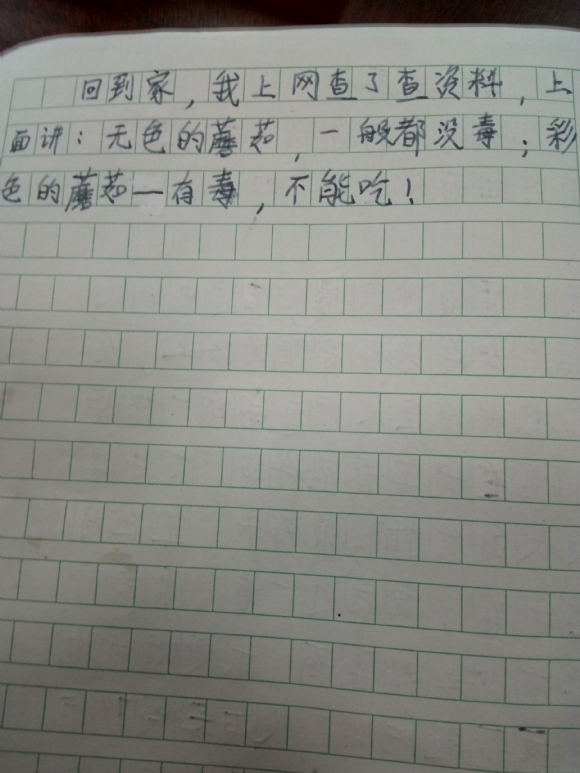 回到家，我上网查了查资料，上
面讲：无色的蘑菇，一般都没毒；彩
色的蘑菇一有毒，不能吃！